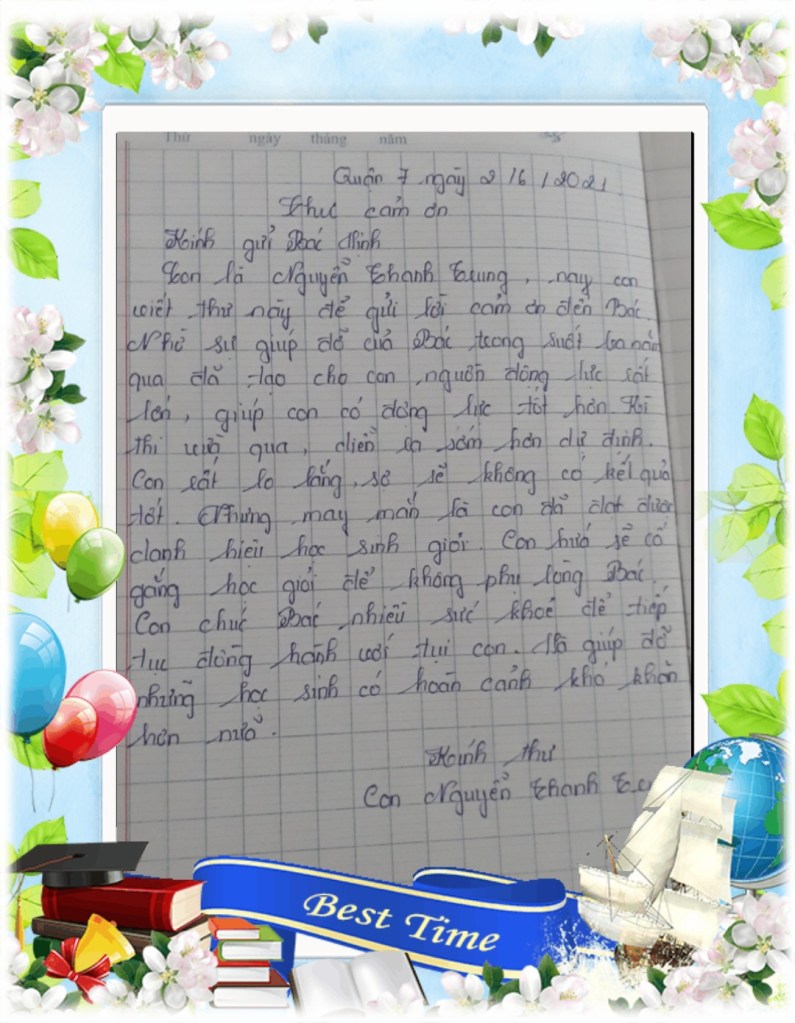 Thứ ngày tháng năm
Quận 7 ngày 2/6/2021
Thư cảm ơn
Kính gửi Bác Minh
Con là Nguyễn Thanh Trung, nay con
viết thư này để gửi lời cảm ơn đến Bác.
Nhờ sự giúp đỡ của Bác trong suốt ba năm
qua đã tạo cho con nguồn động lực rất
lớn, giúp con có động lực tốt hơn. Kì
thi vừa qua, diễn ra sớm hơn dự định.
Con rất lo lắng, sợ sẽ không có kết quả
tốt. Nhưng may mắn là con đã đạt được
danh hiệu học sinh giỏi. Con hứa sẽ cố
gắng học giỏi để không phụ lòng Bác.
Con chúc Bác nhiều sức khoẻ để tiếp
tục đồng hành với tụi con. Và giúp đỡ
những học sinh có hoàn cảnh khó khăn
hơn nữa.
Kính thư
Con Nguyễn Thanh
Best Time